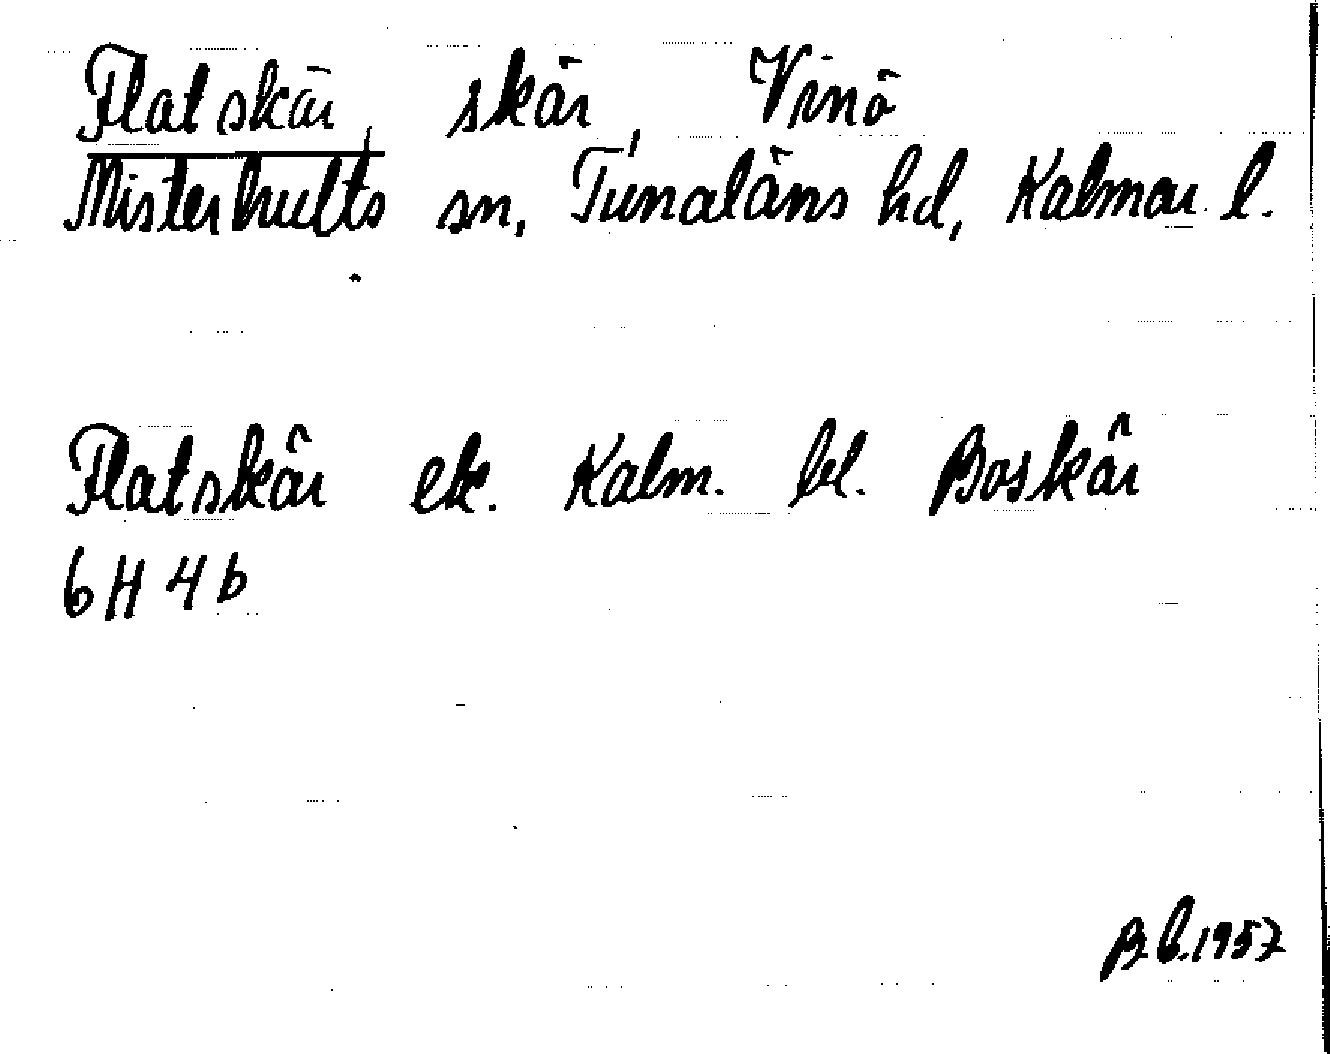 Flatskär, skär, Vinö
Misterhults sn, Tunaläns hd, Kalmar l.
Flatskär ek. Kalm. bl. Boskär
6H4b
B.L. 1957